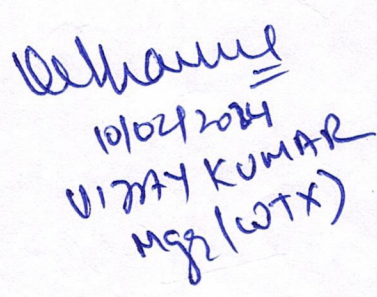 10/02/2024
VIJAY KUMAR
Mgr (WTX)